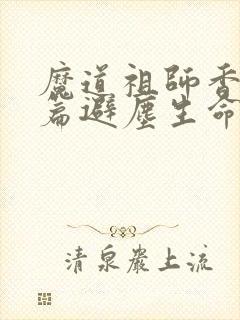 魔道祖師香
篇避塵生命
清泉巖上流